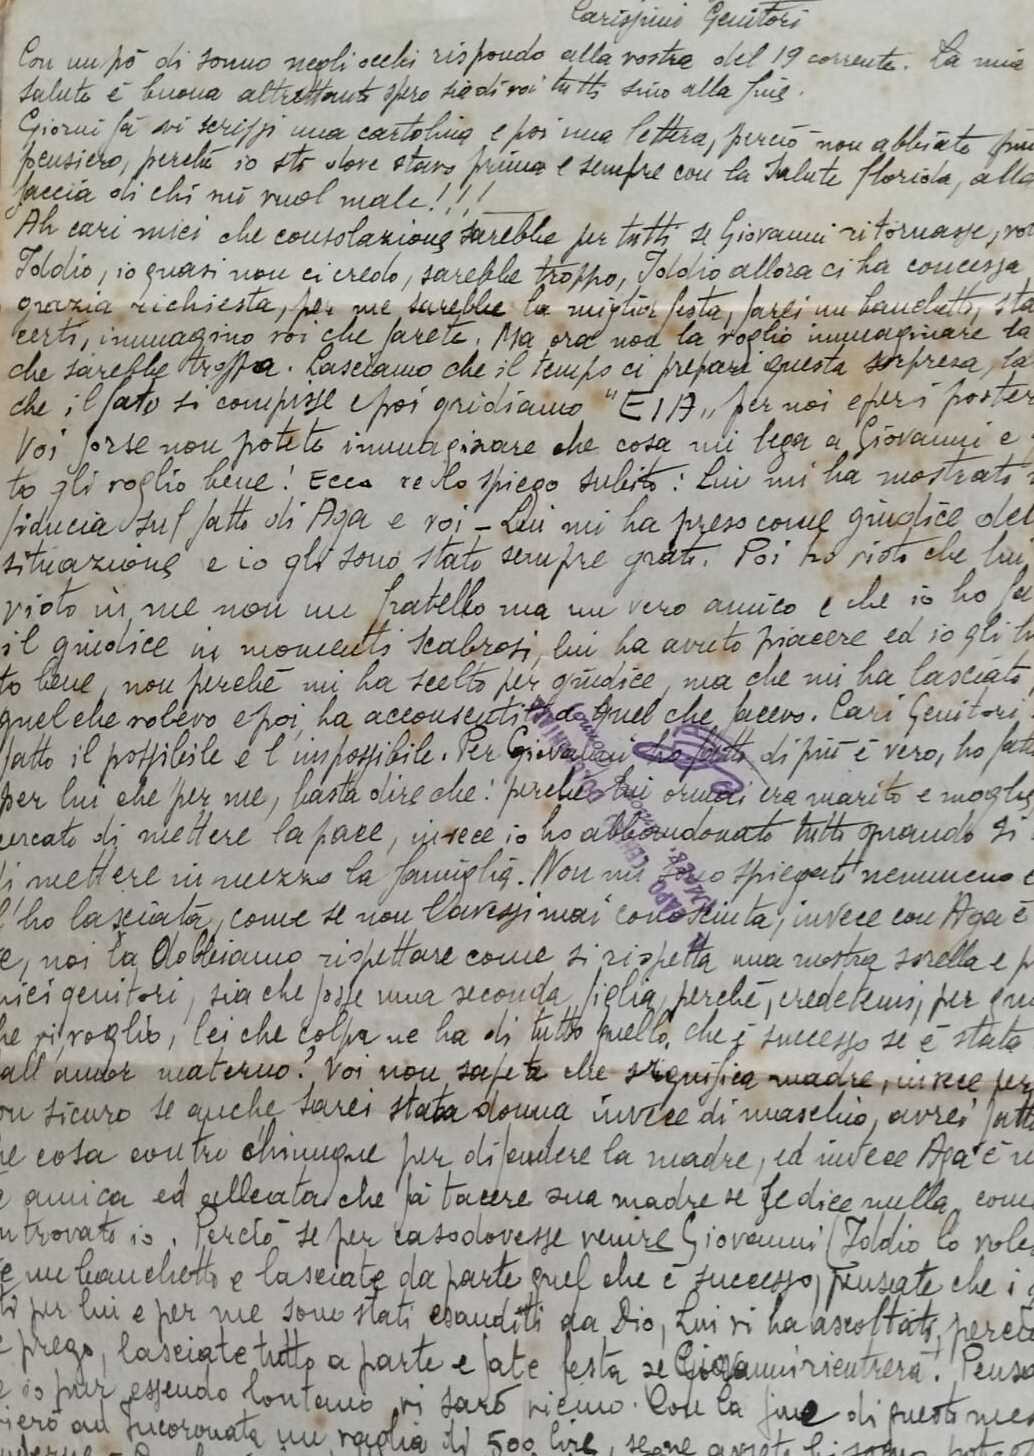 Carissimi Genitori
Con un pò di sonno negli occhi rispondo alla vostra del 19 corrente. La mia
salute è buona altrettanto spero sia di voi tutti sino alla fine.
Giorni fà vi scrissi una cartolina e poi una lettera, perciò non abbiate
pensiero, perchè io stò dove stavo prima e sempre con la salute florida, alla
faccia di chi mi vuol male!!!
Ah cari miei che consolazione sarebbe per tutti se Giovanni ritornasse,
Iddio, io quasi non ci credo, sarebbe troppo, Iddio allora ci ha concessa
grazia richiesta, per me sarebbe la miglior festa, farei un banchetto,
certi, immagino voi che farete. Ma ora non la voglio immaginare la
che sarebbe troppa. Lasciamo che il tempo ci prepari questa sorpresa,
che il fato si compisse e poi gridiamo "EIA„ per noi e per i
Voi forse non potete immaginare che cosa mi lega a Giovanni e
to gli voglio bene! Ecco ve lo spiego subito: Lui mi ha mostrato
fiducia sul fatto di Aga e voi - Lui mi ha preso come giudice
situazione e io gli sono stato sempre grato. Poi ho visto che lui
visto in me non un fratello ma un vero amico e che io ho
il giudice in momenti scabrosi, lui ha avuto piacere ed io gli
to bene, non perchè mi ha scelto per giudice, ma che mi ha lasciato
quel che volevo e poi ha acconsentito a quel che facevo. Cari Genitori
fatto il possibile e l'impossibile. Per Giovanni ho fatto di più è vero, ho
per lui che per me, basta dire che: perchè lui ormai era marito e moglie
cercato di mettere la pace, invece io ho abbandonato tutto quando si
di mettere in mezzo la famiglia. Non mi sono spiegato nemmeno
l'ho lasciata, come se non l'avessi mai conosciuta, invece con Aga è
e, noi la dobbiamo rispettare come si rispetta una nostra sorella e
miei genitori, sia che fosse una seconda figlia, perchè, credetemi, per
he vi voglio, lei che colpa ne ha di tutto quello che è successo se è stata
all'amor materno? Voi non sapete che significa madre, invece
on sicuro se anche sarei stata donna invece di maschio, avrei fatto
he cosa contro chiunque per difendere la madre, ed invece Aga è
e amica ed alleata che fà tacere sua madre se le dice nulla,
trovato io. Perciò se per caso dovesse venire Giovanni (Iddio lo
e un banchetto e lasciate da parte quel che è successo, pensate che i
ti per lui e per me sono stati esauditi da Dio, Lui vi ha ascoltati,
e prego, lasciate tutto a parte e fate festa se Giovanni rientrerà.
e io pur essendo lontano vi sarò vicino. Con la fine di questo mese
ierò ad Incoronata un vaglia di 500 lire,